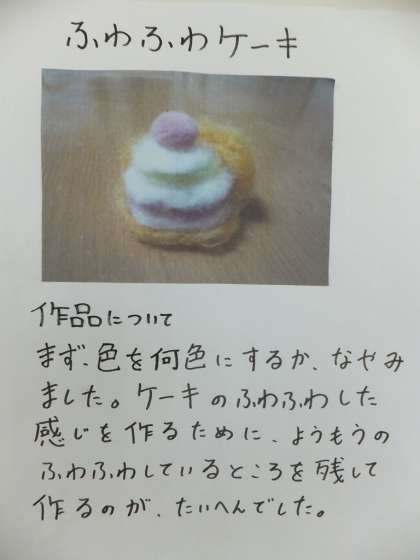 ふわふわケーキ
作品について
まず、色を何色にするか、なやみ
ました。ケーキのふわふわした
感じを作るために、ようもうの
ふわふわしているところを残して
作るのが、たいへんでした。